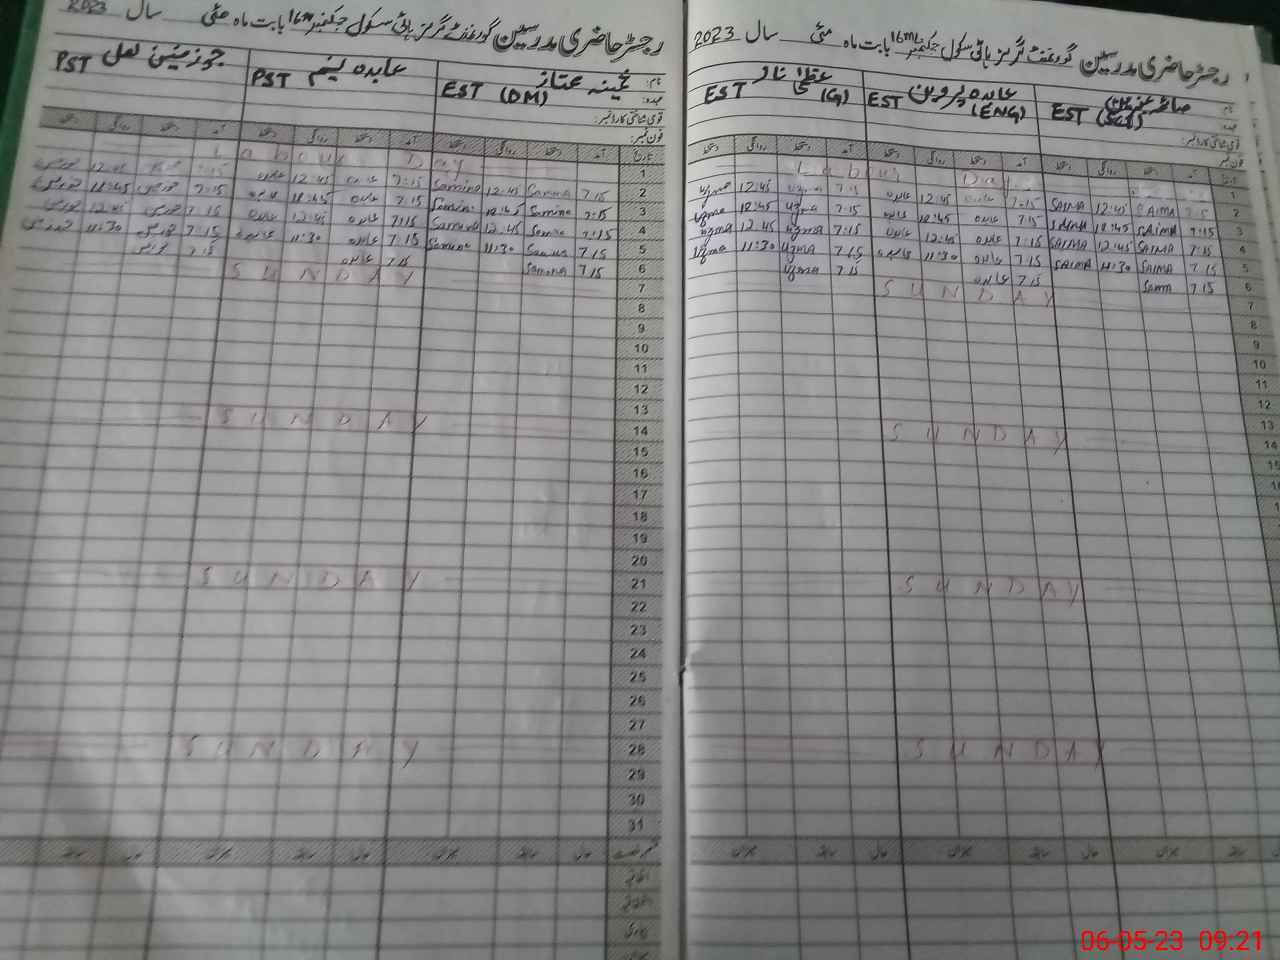 رجسٹر حاضری مدرسین گورنمنٹ گرلز ہائی سکول چک نمبر 16 بابت ماہ مئی سال 2023
نام:
ثمینہ ممتاز EST (DM)
عابدہ نسیم PST
PST
عہدہ:
قومی شناختی کارڈ نمبر:
فون نمبر:
تاریخ آمد دستخط روانگی دستخط آمد دستخط روانگی دستخط آمد دستخط روانگی دستخط
1 Labour Day
2 7:15 Samina 12:45 Samina 7:15 عابدہ 12:45 عابدہ 7:15 12:45
3 7:15 Samina 12:45 Samina 7:15 عابدہ 12:45 عابدہ 7:15 11:45
4 7:15 Samina 12:45 Samina 7:15 عابدہ 12:45 عابدہ 7:15 12:45
5 7:15 Samina 11:30 Samina 7:15 عابدہ 11:30 عابدہ 7:15 11:30
6 7:15 Samina 7:15 عابدہ 7:15
7 SUNDAY
8
9
10
11
12
13
14 SUNDAY
15
16
17
18
19
20
21 SUNDAY
22
23
24
25
26
27
28 SUNDAY
29
30
31
رجسٹر حاضری مدرسین گورنمنٹ گرلز ہائی سکول چک نمبر 16 بابت ماہ مئی سال 2023
نام:
صائمہ EST
عابدہ پروین EST (ENG)
عظمیٰ ناز EST (G)
عہدہ:
قومی شناختی کارڈ نمبر:
فون نمبر:
تاریخ آمد دستخط روانگی دستخط آمد دستخط روانگی دستخط آمد دستخط روانگی دستخط
1 Labour Day
2 7:15 SAIMA 12:45 SAIMA 7:15 عابدہ 12:45 عابدہ 7:15 Uzma 12:45 Uzma
3 7:15 SAIMA 12:45 SAIMA 7:15 عابدہ 12:45 عابدہ 7:15 Uzma 12:45 Uzma
4 7:15 SAIMA 12:45 SAIMA 7:15 عابدہ 12:45 عابدہ 7:15 Uzma 12:45 Uzma
5 7:15 SAIMA 11:30 SAIMA 7:15 عابدہ 11:30 عابدہ 7:15 Uzma 11:30 Uzma
6 7:15 Saima 7:15 عابدہ 7:15 Uzma
7 SUNDAY
8
9
10
11
12
13
14 SUNDAY
15
SUNDAY
SUNDAY
06-05-23 09:21